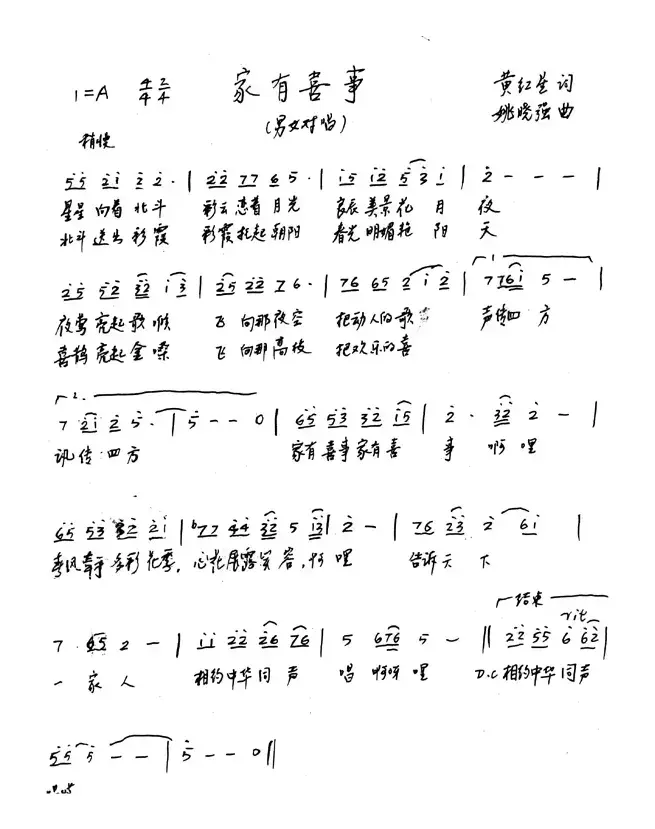 家有喜事
(男女对唱)
1=A 4/4 2/4
黄红生 词
姚晓强 曲
稍快
5 5 2 1 2 2 · | 2 2 7 7 6 5 · | 1 5 1 2 5 3 1 | 2 - - - |
星星 向着 北斗 彩云 恋着 月光 良辰 美景 花 月 夜
北斗 送出 彩霞 彩霞 托起 朝阳 春光 明媚 艳 阳 天
2 5 5 2 3 2 1 3 | 2 5 2 2 7 6 · | 7 6 6 5 2 1 2 | 1. 7 7 6 1 5 - |
夜莺 亮起 歌喉 飞 向那 夜空 把动人的歌声 声传四 方
喜鹊 亮起 金嗓 飞 向那 高枝 把欢乐的喜
2. 7 2 1 2 5 · | 5 - - 0 | 6 5 5 3 3 2 1 5 | 2 · 3 2 2 - |
讯传 四方 家有喜事家有喜 事 啊 哩
6 5 5 3 3 2 2 1 | b7 7 4 4 3 2 5 1 3 | 2 - | 7 6 2 3 2 6 1 |
春风牵手多彩花季, 心花展露笑容, 啊 哩 告诉 天 下
结束 rit
7 6 5 2 - | 1 1 2 2 2 6 7 6 | 5 6 7 6 5 - || 2 2 5 5 6 6 2 |
一 家 人 相约中华同 声 唱 啊呀 哩 D.C 相约中华同声
5 5 5 - - | 5 - - 0 ||